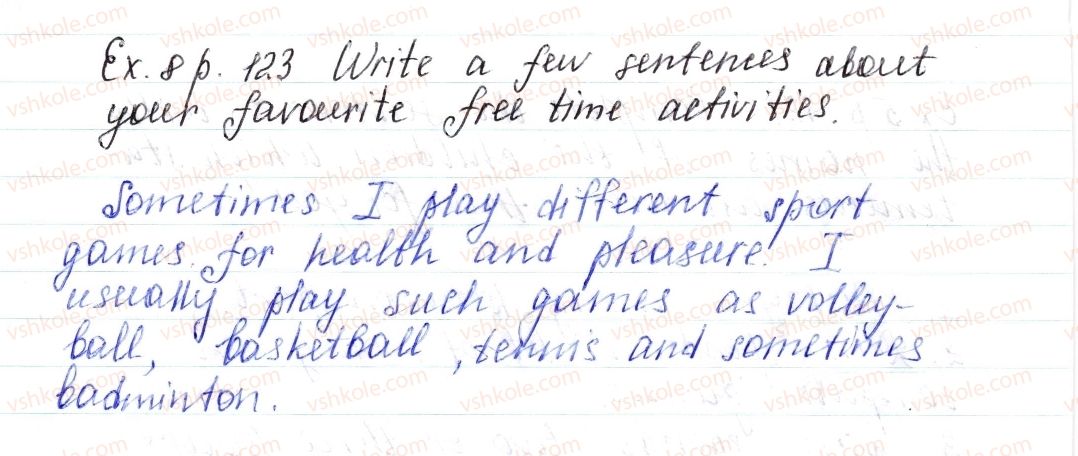 Ex. 8 p. 123 Write a few sentences about
your favourite free time activities.
Sometimes I play different sport
games for health and pleasure. I
usually play such games as volley-
ball, basketball, tennis and sometimes
badminton.